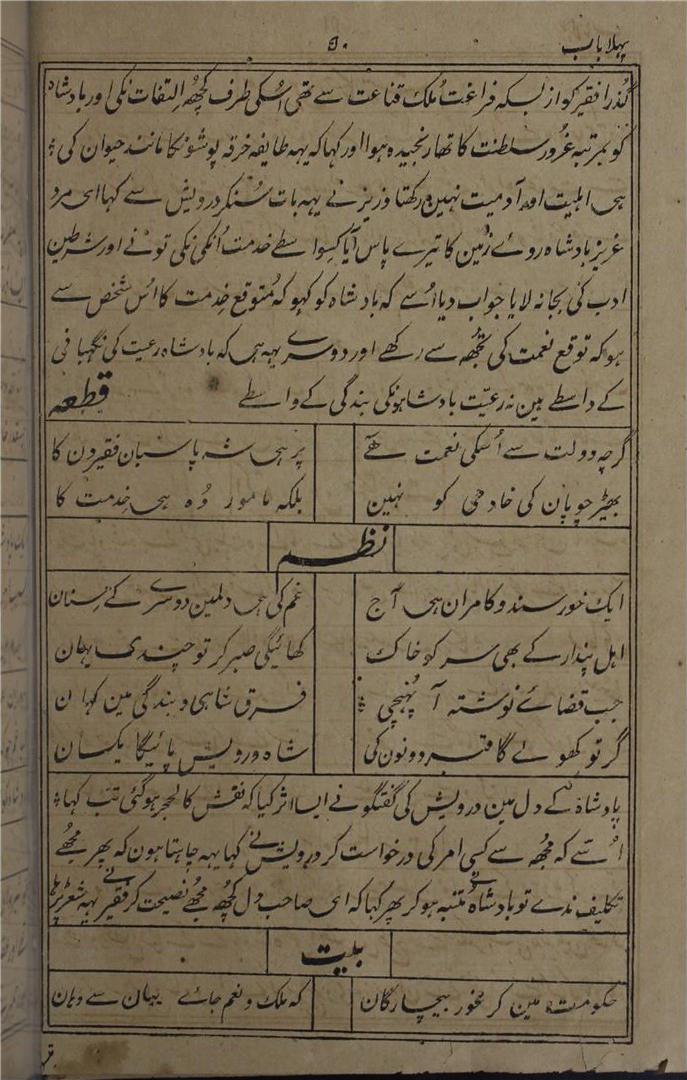 پہلا باب
۵۰
گذرا فقیر کو از بسکہ فراغت ملک قناعت سے تھی اُسکی طرف کچھہ التفات نکی اور بادشاہ
کو بمرتبہ غرور سلطنت کا تھا رنجیدہ ہوا اور کہا کہ یہہ طایفہ خرقہ پوشونکا مانند حیوان کی
ہی اہلیت اور آدمیت نہین رکھتا وزیر نے یہہ بات سُنکر درویش سے کہا ای مرد
عزیز بادشاہ روے زمین کا تیرے پاس آیا کسواسطے خدمت اُنکی نکی تونے اور شرطین
ادب کی بجا نہ لایا جواب دیا اُسے کہ بادشاہ کو کہو کہ مُتوقع خدمت کا اُس شخص سے
ہو کہ توقع نعمت کی تجھہ سے رکھے اور دوسرے یہہ ہی کہ بادشاہ رعیت کی نگہبانی
کے واسطے ہین نہ رعیّت بادشاہونکی بندگی کے واسطے قطعہ
گرچہ دولت سے اُسکی نعمت ہے پر ہی شہ پاسبان فقیرون کا
بھیڑ چوپان کی خادمی کو نہین بلکہ مامور وُہ ہی خدمت کا
نظم
ایک خورسند و کامران ہی آج غم کی ہی دلمین دوسرے کے سنان
اہل پندار کے بھی سر کو خاک کھائیگی صبر کر تو چندی یہان
جب قضاے نوشتہ آ پُہنچی فرق شاہی و بندگی مین کہان
گر تو کھولے گا قبر دونون کی شاہ و درویش پائیگا یکسان
بادشاہ کے دل مین درویش کی گفتگو نے ایسا اثر کیا کہ نقش کالحجر ہو گئی تب کہا
اُسے کہ مجھہ سے کسی امر کی درخواست کر درویش نے کہا یہہ چاہتا ہون کہ پھر مجھے
تکلیف ندے تو بادشاہ نے متنبہ ہو کر پھر کہا کہ ای صاحب دل کچھہ مجھے نصیحت کر فقیر نے یہہ شعر پڑھا
بیت
حکومت مین کر غور بیچارگان کہ ملک و نعم جاے یہان سے وہان